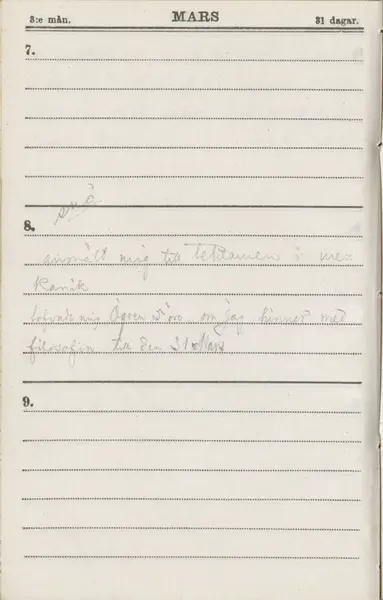 3:e mån. MARS 31 dagar.
7.
snö
8.
anmält mig till tentamen i me-
kanik
lofvade mig Ögren 5 öre om jag hinner med
filosofin till den 31 Mars
9.